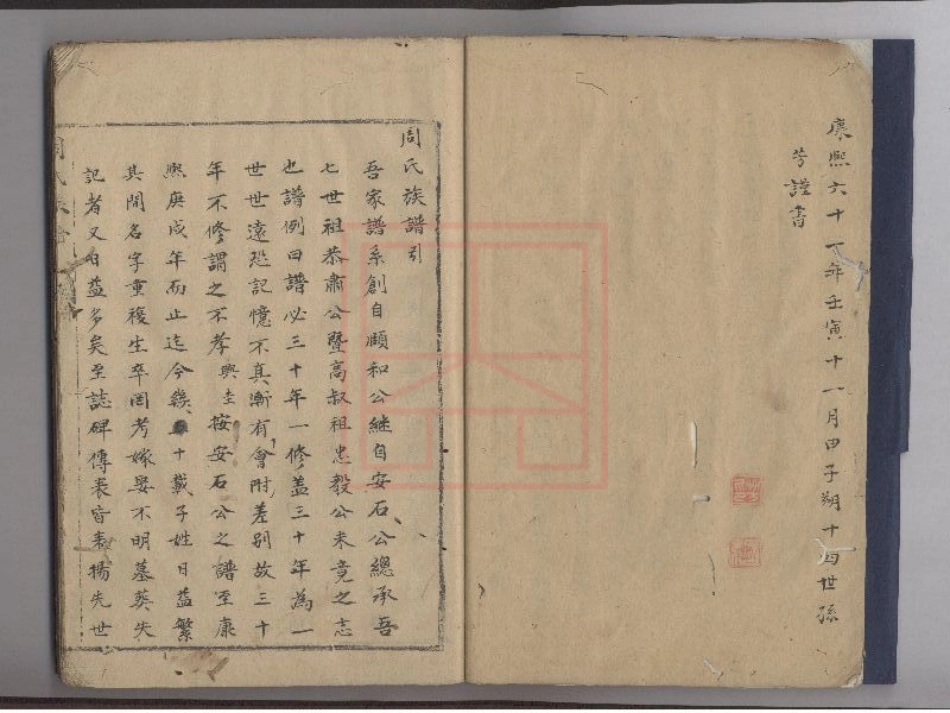 康熙六十一年壬寅十一月甲子朔十四世孫
芳謹書
周氏族譜引
吾家譜系創自頤和公繼自安石公總承吾
七世祖恭肅公暨高叔祖忠毅公未竟之志
也譜例曰譜必三十年一修盖三十年為一
世世遠恐記憶不真漸有會附差別故三十
年不修謂之不孝興圭按安石公之譜至康
熙庚戌年而止迄今幾五十載子姓日益繁
其間名字重複生卒罔考嫁娶不明墓葬失
記者又日益多矣至誌碑傳表皆表揚先世
周氏族譜